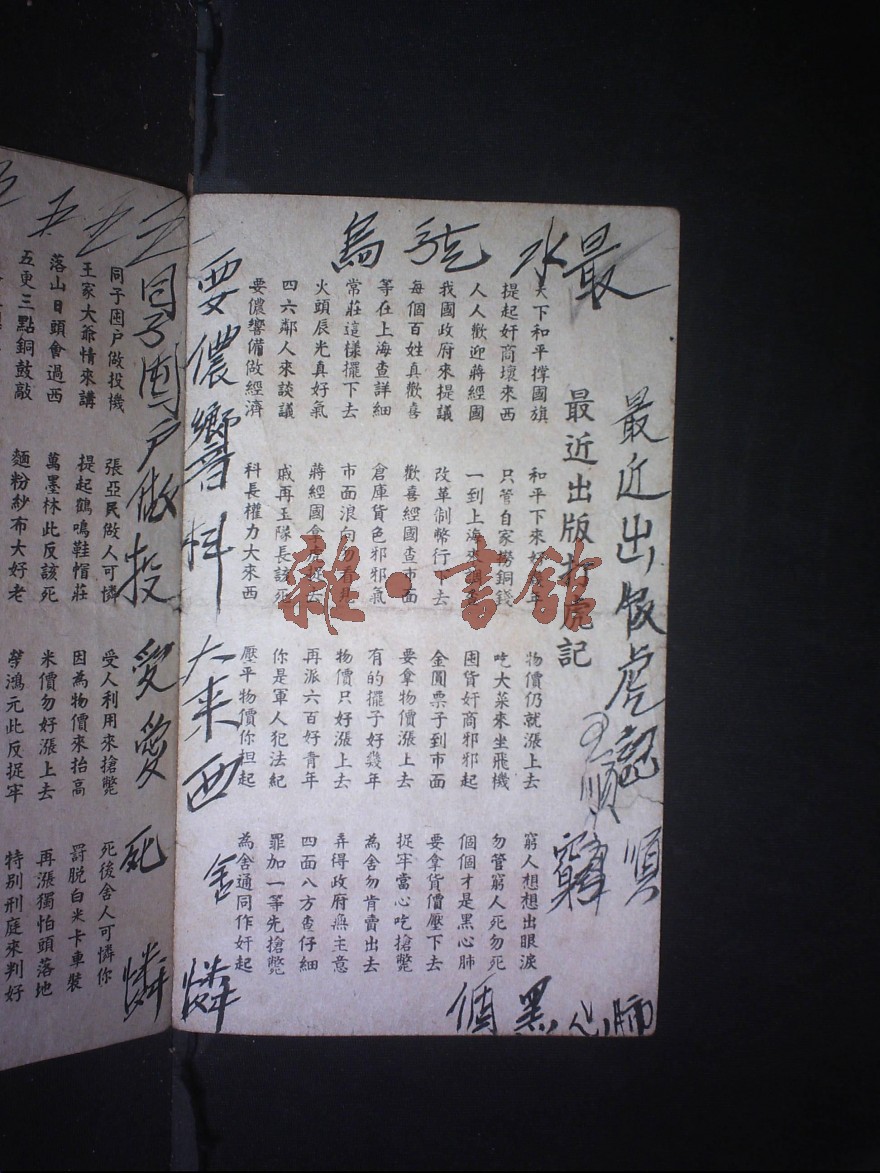 最近出版打虎記
天下和平撑國旗 和平下來好幾年 物價仍就漲上去 窮人想想出眼淚
提起奸商壞來西 只管自家撈銅錢 吃大菜來坐飛機 勿管窮人死勿死
人人歡迎蔣經國 一到上海來調查 囤貨奸商邪邪起 個個才是黑心肺
我國政府來提議 改革制幣行下去 金圓票子到市面 要拿貨價壓下去
每個百姓真歡喜 歡喜經國查市面 要拿物價漲上去 捉牢當心吃搶斃
等在上海查詳細 倉庫貨色邪邪氣 有的擺子好幾年 為舍勿肯賣出去
常莊這樣擺下去 市面浪向勿看見 物價只好漲上去 弄得政府無主意
火頭辰光真好氣 蔣經國拿虎捉去 再派六百好青年 四面八方查仔細
四六鄰人來談議 戚再玉隊長該死 你是軍人犯法紀 罪加一等先搶斃
要儂響備做經濟 科長權力大來西 壓平物價你担起 為舍通同作奸起
同子囤户做投機 張亞民做人可憐 受人利用來搶斃 死後舍人可憐你
王家大爺情來講 提起鶴鳴鞋帽莊 因為物價來抬高 罸脱白米卡車裝
落山日頭會過西 萬墨林此反該死 米價勿好漲上去 再漲獨怕頭落地
五更三點銅鼓敲 麵粉紗布大好老 榮鴻元此反捉牢 特别刑庭來判好
最
水
烏
最近出
虎記
順
窮
黑心肺
要儂響科大來西
舍
憐
五
五
五
同子囤户做投
愛愛死憐
雜·書館